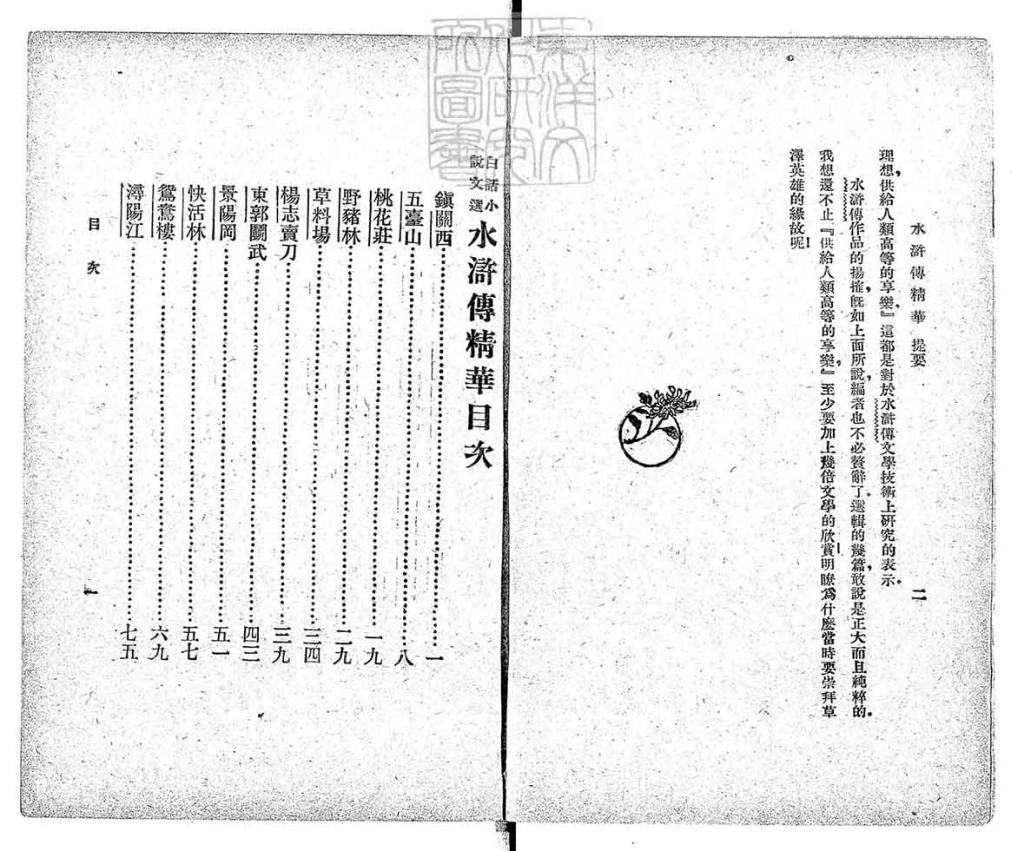 水滸傳精華 提要
二
理想，供給人類高等的享樂，』這都是對於水滸傳文學技術上研究的表示。
水滸傳作品的揚搉，旣如上面所說，編者也不必贅辭了。選輯的幾篇，敢說是正大而且純粹的。
我想還不止『供給人類高等的享樂，』至少要加上幾倍文學的欣賞！明瞭爲什麼當時要崇拜草
澤英雄的緣故呢！
白話小說文選 水滸傳精華目次
鎭關西⋯⋯一
五臺山⋯⋯八
桃花莊⋯⋯一九
野豬林⋯⋯二九
草料場⋯⋯三四
楊志賣刀⋯⋯三九
東郭鬭武⋯⋯四三
景陽岡⋯⋯五一
快活林⋯⋯五七
鴛鴦樓⋯⋯六九
潯陽江⋯⋯七五
目次
一